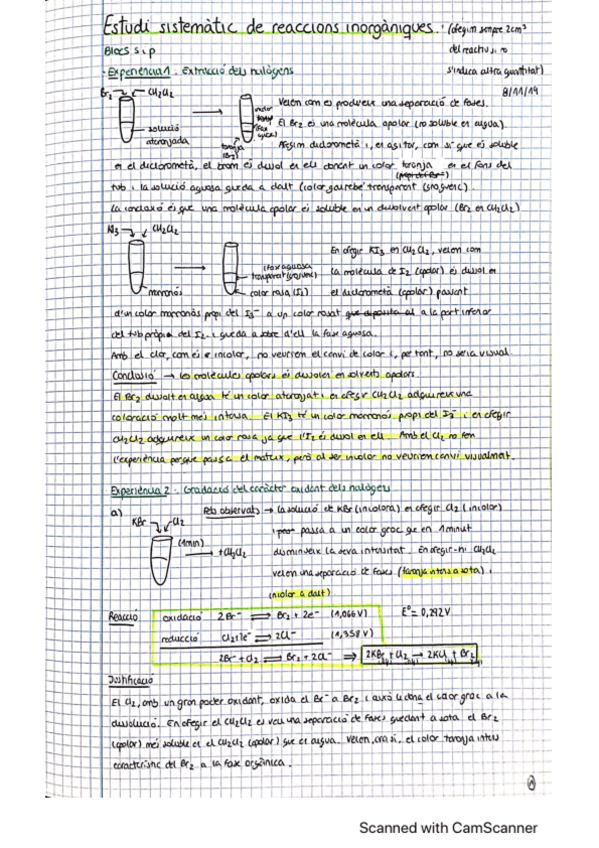 Estudi sistemàtic de reaccions inorgàniques. (afegim sempre 2cm³
Blocs s i p
del reactiu si no
s'indica altra quantitat)
· Experiència 1. Extracció dels halògens
8/11/19
Br₂ CH₂Cl₂
Veiem com es produeix una separació de fases.
El Br₂ és una molècula apolar (no soluble en aigua).
solució
ataronjada
taronja
(Br₂)
Afegim diclorometà i, en agitar, com sí que és soluble
en el diclorometà, el brom es dissol en ell donant un color taronja en el fons del
tub i la solució aquosa queda a dalt (color gairebé transparent (groguenc).
La conclusió és que una molècula apolar és soluble en un dissolvent apolar (Br₂ en CH₂Cl₂)
KI₃ CH₂Cl₂
En afegir KI₃ en CH₂Cl₂, veiem com
(fase aquosa
la molècula de I₂ (apolar) es dissol en
marronós
color rosa (I₂)
el diclorometà (apolar) passant
d'un color marronós propi del I₃⁻ a un color rosat a la part inferior
del tub pròpia del I₂ i queda a sobre d'ell la fase aquosa.
Amb el clor, com és incolor, no veuríem el canvi de color i, per tant, no seria visual.
Conclusió → les molècules apolars es dissolen en solvents apolars.
El Br₂ dissolt en aigua té un color ataronjat i en afegir CH₂Cl₂ adquireix una
coloració molt més intensa. El KI₃ té un color marronós propi del I₃⁻ i en afegir
CH₂Cl₂ adquireix un color rosa ja que l'I₂ es dissol en ell. Amb el Cl₂ no fem
l'experiència perquè passa el mateix, però al ser incolor no veuríem canvi visualment.
Experiència 2. Gradació del caràcter oxidant dels halògens
a)
Fets observats → la solució de KBr (incolora) en afegir Cl₂ (incolor)
KBr Cl₂
passa a un color groc que en 1 minut
(1min)
+CH₂Cl₂
disminueix la seva intensitat. En afegir-hi CH₂Cl₂
veiem una separació de fases (taronja intens a sota) i
(incolor a dalt)
Reacció
oxidació 2Br⁻ ⇌ Br₂ + 2e⁻ (1,066V) E°= 0,292V
reducció Cl₂ + 2e⁻ ⇌ 2Cl⁻ (1,358V)
2Br⁻ + Cl₂ ⇌ Br₂ + 2Cl⁻ ⇒ 2KBr + Cl₂ → 2KCl + Br₂
Justificació
El Cl₂, amb un gran poder oxidant, oxida el Br⁻ a Br₂ i això li dona el color groc a la
dissolució. En afegir el CH₂Cl₂ es veu una separació de fases quedant a sota el Br₂
(apolar) més soluble en el CH₂Cl₂ (apolar) que en aigua. Veiem, ara sí, el color taronja intens
característic del Br₂ a la fase orgànica.
Scanned with CamScanner